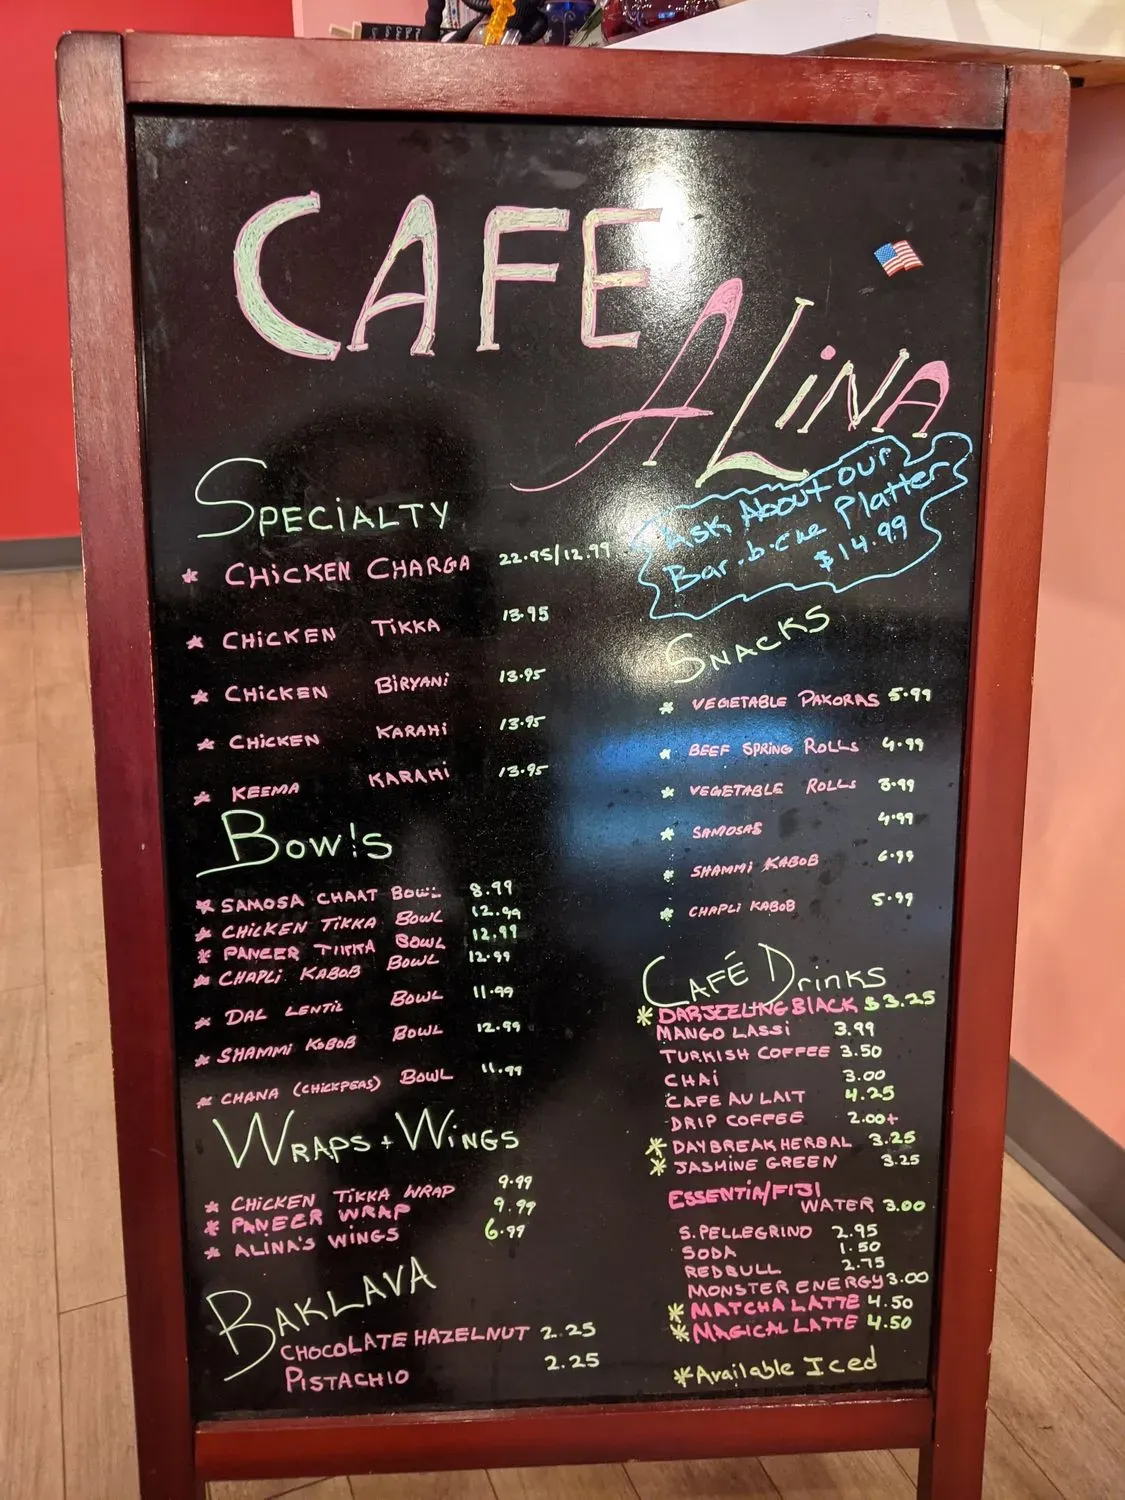 CAFE
ALiNA
Ask About our
Bar.b.Que Platter
$14.99
SPECiALTY
CHiCKEN CHARGA 22.95/12.99
CHiCKEN TiKKA 13.95
CHiCKEN BiRYANi 13.95
CHiCKEN KARAHi 13.95
KEEMA KARAHi 13.95
BOWl'S
SAMOSA CHAAT BOWL 8.99
CHiCKEN TiKKA BOWL 12.99
PANEER TIKKA BOWL 12.99
CHAPLi KABOB BOWL 12.99
DAL LENTIL BOWL 11.99
SHAMMi KOBOB BOWL 12.99
CHANA (CHICKPEAS) BOWL 11.99
WRAPS + WiNGS
CHiCKEN TiKKA WRAP 9.99
PANEER WRAP 9.99
ALiNA'S WiNGS 6.99
BAKLAVA
CHOCOLATE HAZELNUT 2.25
PISTACHIO 2.25
SNACKS
VEGETABLE PAKORAS 5.99
BEEF SPRING ROLLS 4.99
VEGETABLE ROLLS 3.99
SAMOSAS 4.99
SHAMMi KABOB 6.99
CHAPLi KABOB 5.99
CAFÉ Drinks
*DARJEELING BlACK $3.25
MANGO LASSi 3.99
TURKISH COFFEE 3.50
CHAi 3.00
CAFE AU LAIT 4.25
DRIP COFFEE 2.00+
*DAYBREAK HERBAL 3.25
*JASMINE GREEN 3.25
ESSENTIA/FIJI
WATER 3.00
S.PELLEGRINO 2.95
SODA 1.50
REDBULL 2.75
MONSTER ENERGY 3.00
*MATCHA LATTE 4.50
*MAGICAL LATTE 4.50
*Available Iced